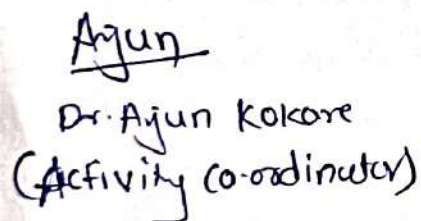 Arjun
Dr. Arjun Kokare
(Activity Co-ordinator)